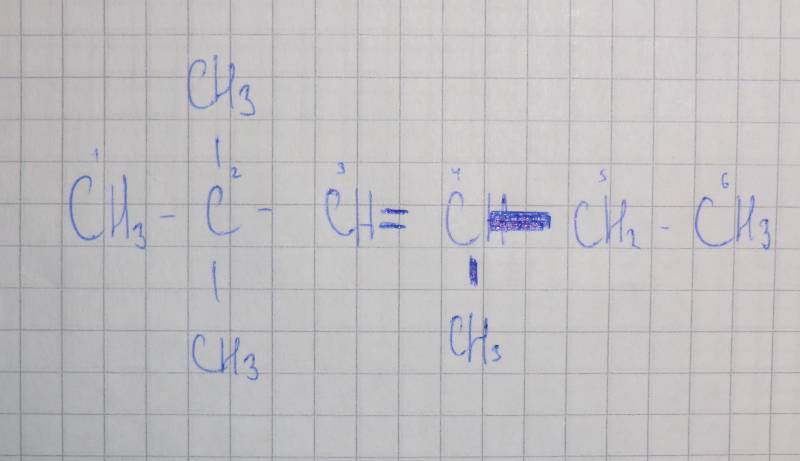 CH3
1 2 3 4 5 6
CH3 - C - CH = CH - CH2 - CH3
CH3
CH3